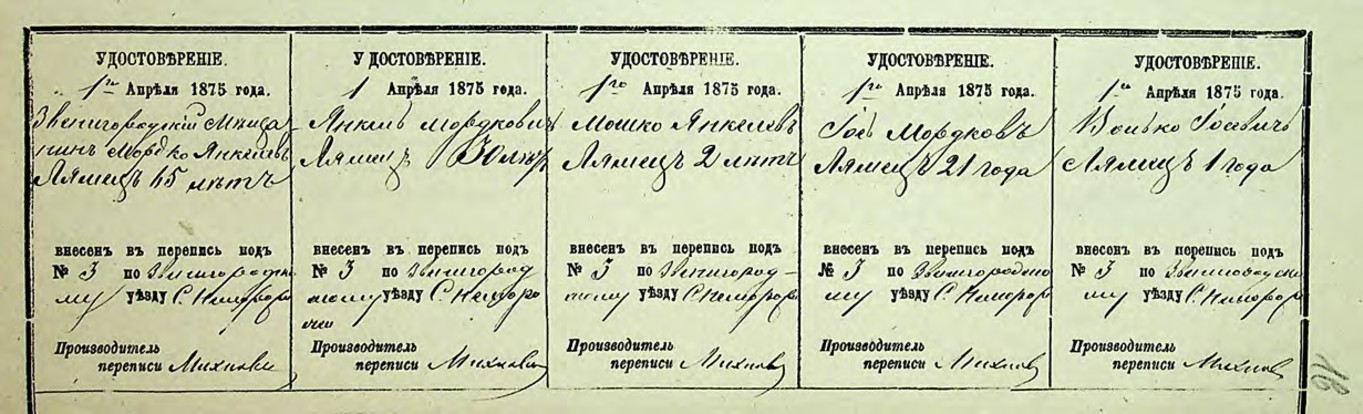 УДОСТОВѢРЕНІЕ.
1го Апрѣля 1875 года.
Звенигородскій Мѣща-
нинъ Мордко Янкелевъ
Лямецъ 45 лѣтъ
внесенъ въ перепись подъ
№ 3 по Звенигородско
му уѣзду С.
Производитель
переписи
УДОСТОВѢРЕНІЕ.
1 Апрѣля 1875 года.
Янкель Мордковичъ
Лямецъ 30 лѣтъ
внесенъ въ перепись подъ
№ 3 по Звенигород
скому уѣзду С.
Производитель
переписи
УДОСТОВѢРЕНІЕ.
1го Апрѣля 1875 года.
Мошко Янкелевъ
Лямецъ 2 лѣтъ
внесенъ въ перепись подъ
№ 3 по Звенигород-
скому уѣзду С.
Производитель
переписи
УДОСТОВѢРЕНІЕ.
1го Апрѣля 1875 года.
Іось Мордковъ
Лямецъ 21 года
внесенъ въ перепись подъ
№ 3 по Звенигородско
му уѣзду С.
Производитель
переписи
УДОСТОВѢРЕНІЕ.
1го Апрѣля 1875 года.
Волько Іосевичъ
Лямецъ 1 года
внесенъ въ перепись подъ
№ 3 по Звенигородско
му уѣзду С.
Производитель
переписи